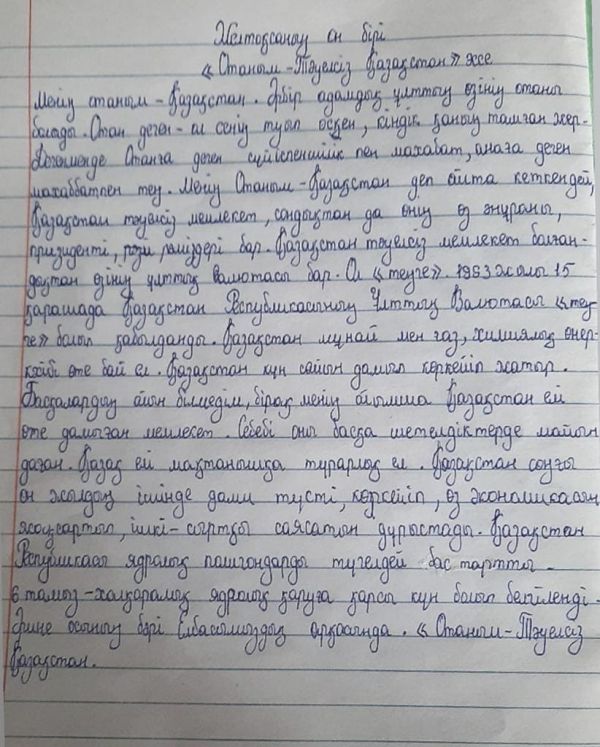 Желтоқсаның он бірі
«Отаным-Тәуелсіз Қазақстан» эссе
Менің отаным-Қазақстан. Әрбір адамдық ұлттың өзінің отаны
болады. Отан деген-ол сенің туып өскен, кіндік қаның тамған жер.
Дегенменде Отанға деген сүйіспеншілік пен махабат, анаға деген
махаббатпен тең. Менің Отаным-Қазақстан деп айта кеткендей,
Қазақстан тәуелсіз мемлекет, сондықтан да оның өз әнұраны,
призиденті, рәміздері бар. Қазақстан тәуелсіз мемлекет болған-
дықтан өзінің ұлттық валютасы бар. Ол «теңге». 1963 жылы 15
қарашада Қазақстан Республикасының Ұлттық Валютасы «тең
ге» болып қабылданды. Қазақстан мұнай мен газ, химиялық өнер-
кәсібі өте бай ел. Қазақстан күн сайын дамып көркейіп жатыр.
Басқалардың ойын білмедім, бірақ менің ойымша Қазақстан елі
өте дамыған мемлекет. Себебі оны басқа шетелдіктерде мойын
даған. Қазақ елі мақтанышқа тұрарлық ел. Қазақстан соңғы
он жылдың ішінде дами түсті, көркейіп, өз экономикасын
жақсартып, ішкі-сыртқы саясатын дұрыстады. Қазақстан
Республикасы ядролық полигондарды түгелдей бас тартты.
6 тамыз-халқаралық ядролық қаруға қарсы күн болып белгіленді.
Әрине осының бәрі Елбасымыздың арқасында. «Отаным-Тәуелсіз
Қазақстан.